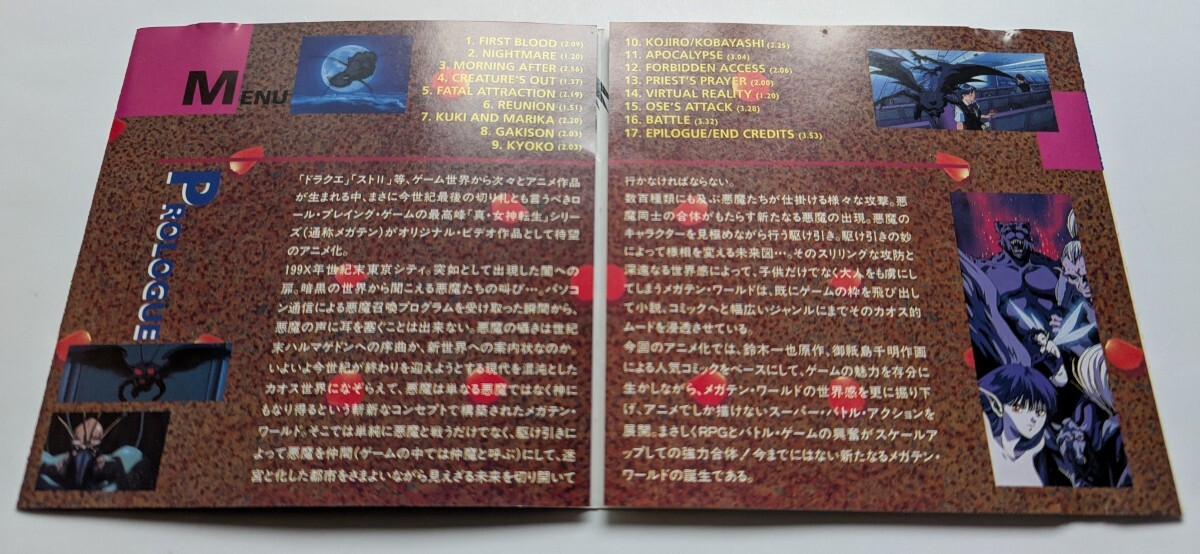 MENU
1. FIRST BLOOD (2.09)
2. NIGHTMARE (1.20)
3. MORNING AFTER (2.56)
4. CREATURE'S OUT (1.37)
5. FATAL ATTRACTION (2.19)
6. REUNION (1.51)
7. KUKI AND MARIKA (2.20)
8. GAKISON (2.03)
9. KYOKO (2.03)
10. KOJIRO/KOBAYASHI (2.25)
11. APOCALYPSE (3.04)
12. FORBIDDEN ACCESS (2.06)
13. PRIEST'S PRAYER (2.00)
14. VIRTUAL REALITY (1.20)
15. OSE'S ATTACK (3.28)
16. BATTLE (3.32)
17. EPILOGUE/END CREDITS (3.53)
PROLOGUE
「ドラクエ」「ストII」等、ゲーム世界から次々とアニメ作品
が生まれる中、まさに今世紀最後の切り札とも言うべきロ
ール・プレイング・ゲームの最高峰「真・女神転生」シリー
ズ(通称メガテン)がオリジナル・ビデオ作品として待望
のアニメ化。
199X年世紀末東京シティ。突如として出現した闇への
扉。暗黒の世界から聞こえる悪魔たちの叫び…。パソコ
ン通信による悪魔召喚プログラムを受け取った瞬間から、
悪魔の声に耳を塞ぐことは出来ない。悪魔の囁きは世紀
末ハルマゲドンへの序曲か、新世界への案内状なのか。
いよいよ今世紀が終わりを迎えようとする現代を混沌とした
カオス世界になぞらえて、悪魔は単なる悪魔ではなく神に
もなり得るという斬新なコンセプトで構築されたメガテン・
ワールド。そこでは単純に悪魔と戦うだけでなく、駆け引きに
よって悪魔を仲間(ゲームの中では仲魔と呼ぶ)にして、迷
宮と化した都市をさまよいながら見えざる未来を切り開いて
行かなければならない。
数百種類にも及ぶ悪魔たちが仕掛ける様々な攻撃。悪
魔同士の合体がもたらす新たなる悪魔の出現。悪魔の
キャラクターを見極めながら行う駆け引き。駆け引きの妙
によって様相を変える未来図…。そのスリリングな攻防と
深遠なる世界感によって、子供だけでなく大人をも虜にし
てしまうメガテン・ワールドは、既にゲームの枠を飛び出し
て小説、コミックへと幅広いジャンルにまでそのカオス的
ムードを浸透させている。
今回のアニメ化では、鈴木一也原作、御祇島千明作画
による人気コミックをベースにして、ゲームの魅力を存分に
生かしながら、メガテン・ワールドの世界感を更に掘り下
げ、アニメでしか描けないスーパー・バトル・アクションを
展開。まさしくRPGとバトル・ゲームの興奮がスケールア
ップしての強力合体！今までにはない新たなるメガテン・
ワールドの誕生である。